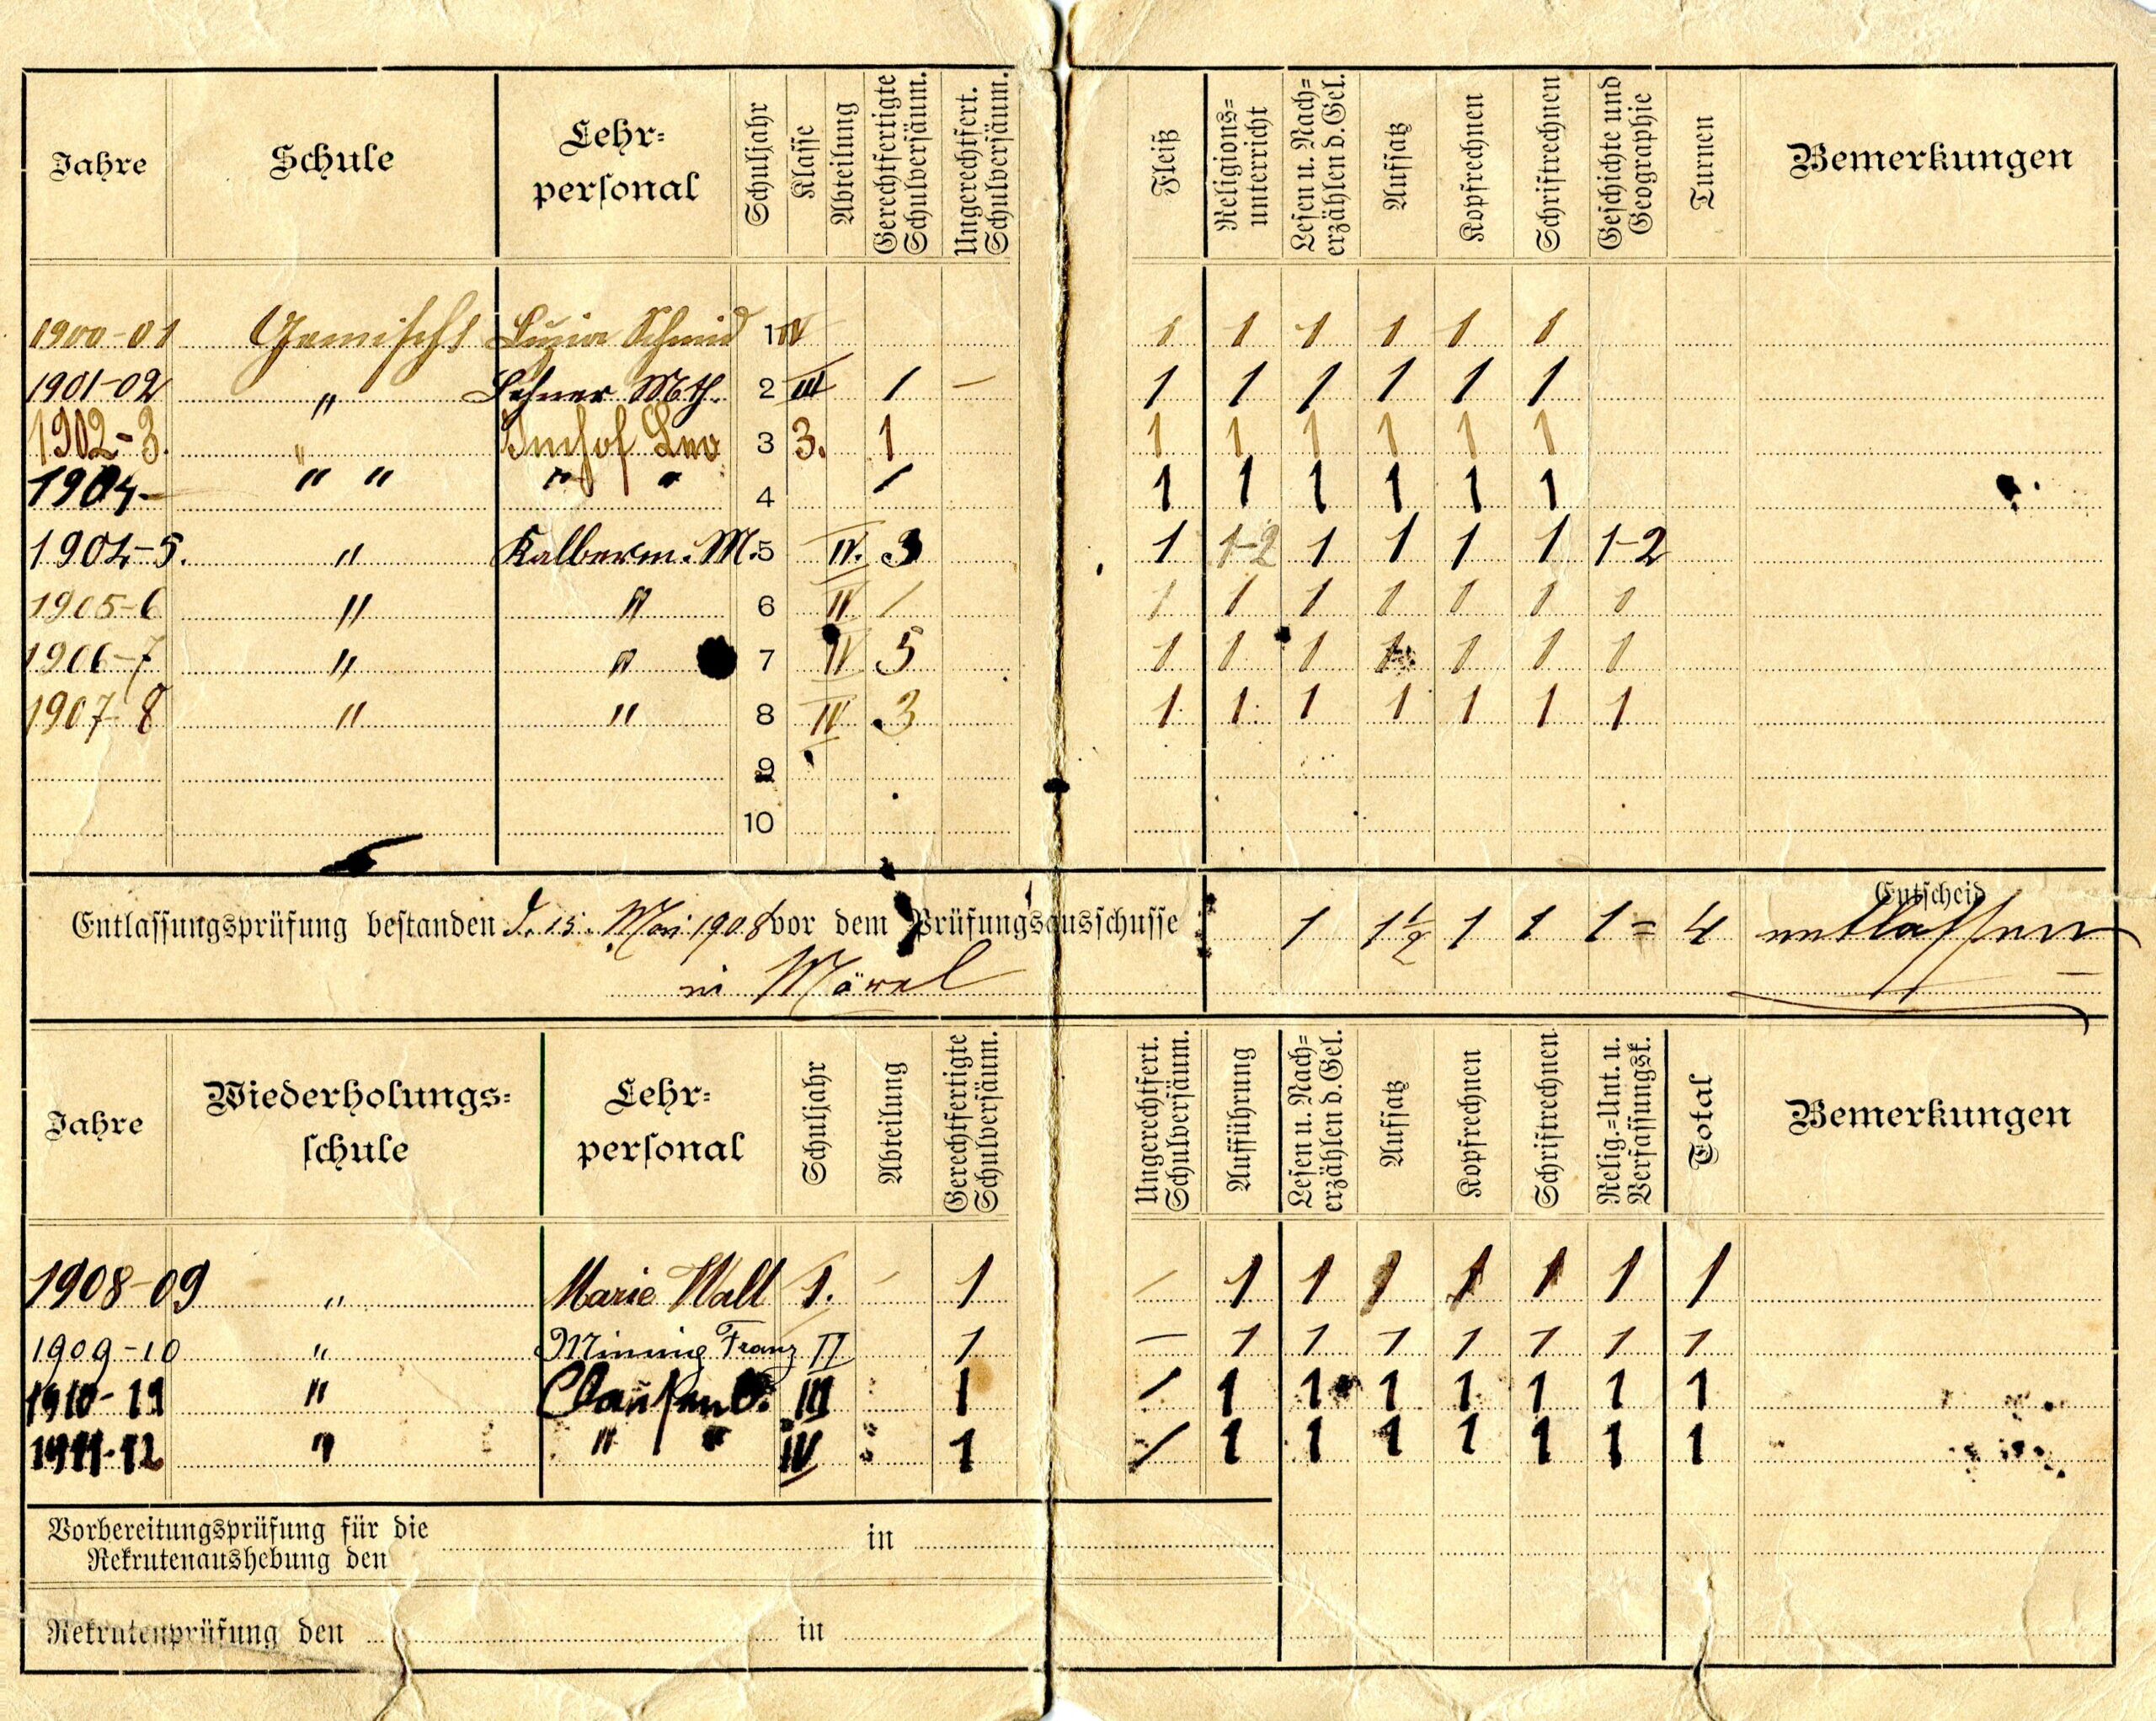 Jahre Schule Lehr-personal Schuljahr Klasse Abteilung Gerechtfertigte Schulversäum. Ungerechtfert. Schulversäum. Fleiß Religions-unterricht Lesen u. Nach-erzählen d. Gel. Aufsatz Kopfrechnen Schriftrechnen Geschichte und Geographie Turnen Bemerkungen
1900-01 Gemischt Luzia Schmid 1 IV 1 1 1 1 1 1
1901-02 " Lehner Mth. 2 III / – 1 1 1 1 1 1
1902-3. " Imhof Leo 3 3. 1 1 1 1 1 1 1
1904- " " " " 4 / 1 1 1 1 1 1
1904-5. " Kalberm. M. 5 IV. 3 1 1-2 1 1 1 1 1-2
1905-6 " " 6 IV / 1 1 1 1 1 1 1
1906-7 " " 7 IV 5 1 1 1 1 1 1 1
1907-8 " " 8 IV 3 1 1 1 1 1 1 1
9
10
Entlassungsprüfung bestanden d. 15. Mai 1908 vor dem Prüfungsausschusse 1 1½ 1 1 1 = 4 Entscheid entlassen
in Mörel
Jahre Wiederholungs-schule Lehr-personal Schuljahr Abteilung Gerechtfertigte Schulversäum. Ungerechtfert. Schulversäum. Aufführung Lesen u. Nach-erzählen d. Gel. Aufsatz Kopfrechnen Schriftrechnen Relig.-Unt. u. Verfassungsk. Total Bemerkungen
1908-09 " Marie Wall I. – 1 – 1 1 1 1 1 1 1
1909-10 " Minnig Franz II 1 – 1 1 1 1 1 1 1
1910-11 " Clausen III 1 / 1 1 1 1 1 1 1
1911-12 " " " IV 1 / 1 1 1 1 1 1 1
Vorbereitungsprüfung für die
Rekrutenaushebung den in
Rekrutenprüfung den in